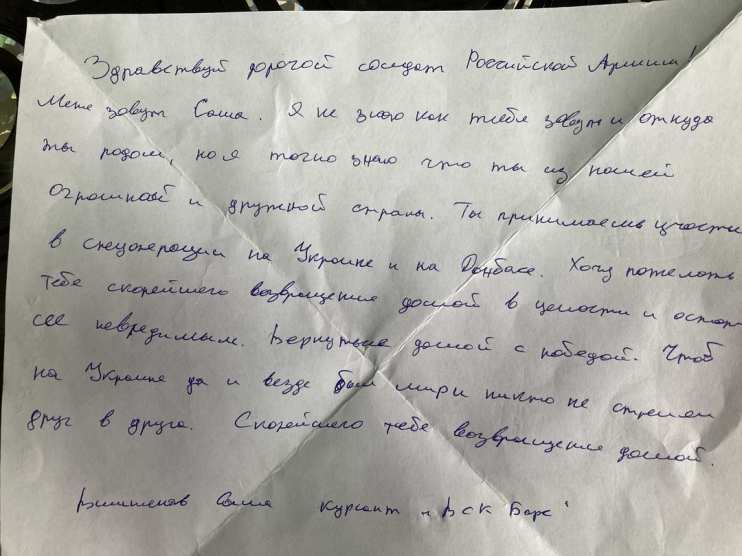 Здравствуй дорогой солдат Российской Армии!
Меня зовут Саша. Я не знаю как тебя зовут и откуда
ты родом, но я точно знаю что ты из нашей
огромной и дружной страны. Ты принимаешь участи
в спецоперации на Украине и на Донбасе. Хочу пожелать
тебе скорейшего возвращение домой в целости и остат
сее невредимым. Вернуться домой с победой. Чтоб
на Украине да и везде был мир и никто не стрелял
друг в друга. Скорейшего тебе возвращение домой.
Саша курсант "ВСК Барс"